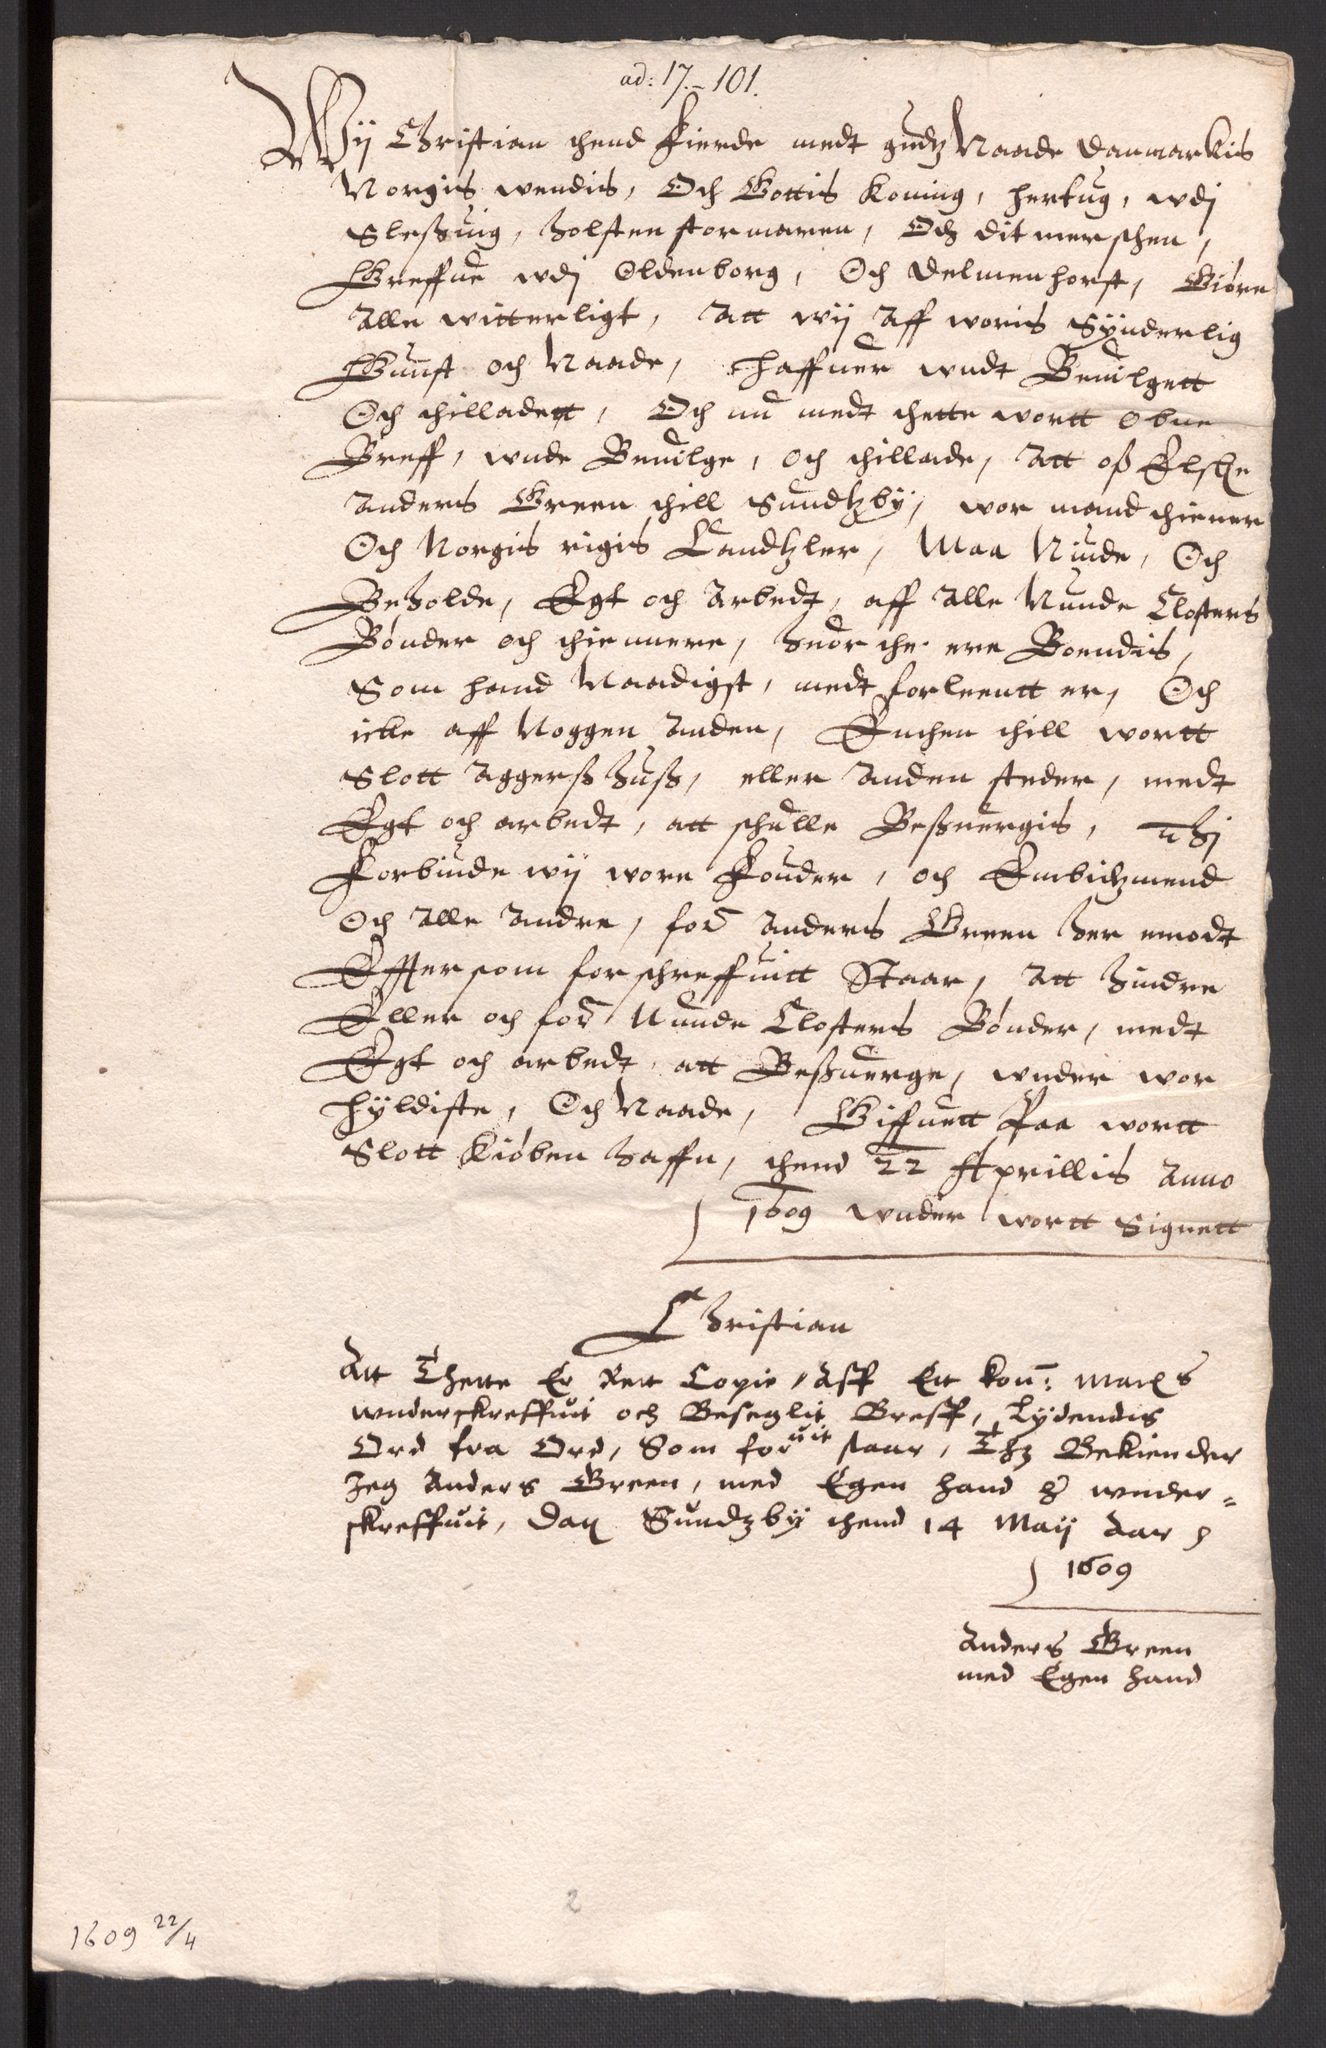 ad: 17.-101.
Wij Christian thend Fierde medt gudtz Naade Danmarkis
Norgis wendis, Och Gottis Koning, hertug, wdj
Sleßuig, Holsten stormaren, Och ditmerschen,
Greffue wdj Oldenborg, Och Delmenhorst, Giøre
Alle witterligt, Att wij Aff woris Synderlig
Gunst och Naade, Haffuer wndt Beuilgett
Och thilladett, Och nu medt thette wortt obne
Breff, wnde Beuilge, och thillade, Att oß Elsche
Anders Green thill Sundtzby, wor mand thiener
Och Norgis rigis Candtzler, Maa Niude, Och
Beholde, Egt och Arbedt, aff Alle Nunde Closters
Bønder och thiennere, huor the ere Boendis,
Som hand Naadigst, medt forleentt er, Och
icke aff Noggen Anden, Enthen thill wortt
Slott Aggerß huß, eller Anden steder, medt
Egt och arbedt, att schulle Beßuergis, thj
Forbiude wij wore Fouder, och Embidtzmend
Och Alle Andre, for Anders Green her emodt
Effter som forschreffuitt Staar, Att hindre
Eller och for Nunde Closters Bønder, medt
Egt och arbedt att Beßuerge, wnder wor
Hyldiste, Och Naade, Giffuett Paa wortt
Slott Kiøben haffn, thend 22 Aprillis Anno
1609 wnder wortt Signett
Christian
Att Thette Er Rett Copie Aff Ett kon: Mats
wnderskreffuit och Beseglit Breff, Lydendis
Ord fra Ord, Som foruit staar, Thz Bekiender
Jeg Anders Green, med Egen hand her wnder=
skreffuit, Dat Sundzby thend 14 Maij Aar
1609
Anders Green
med Egen hand
2
1609 22/4